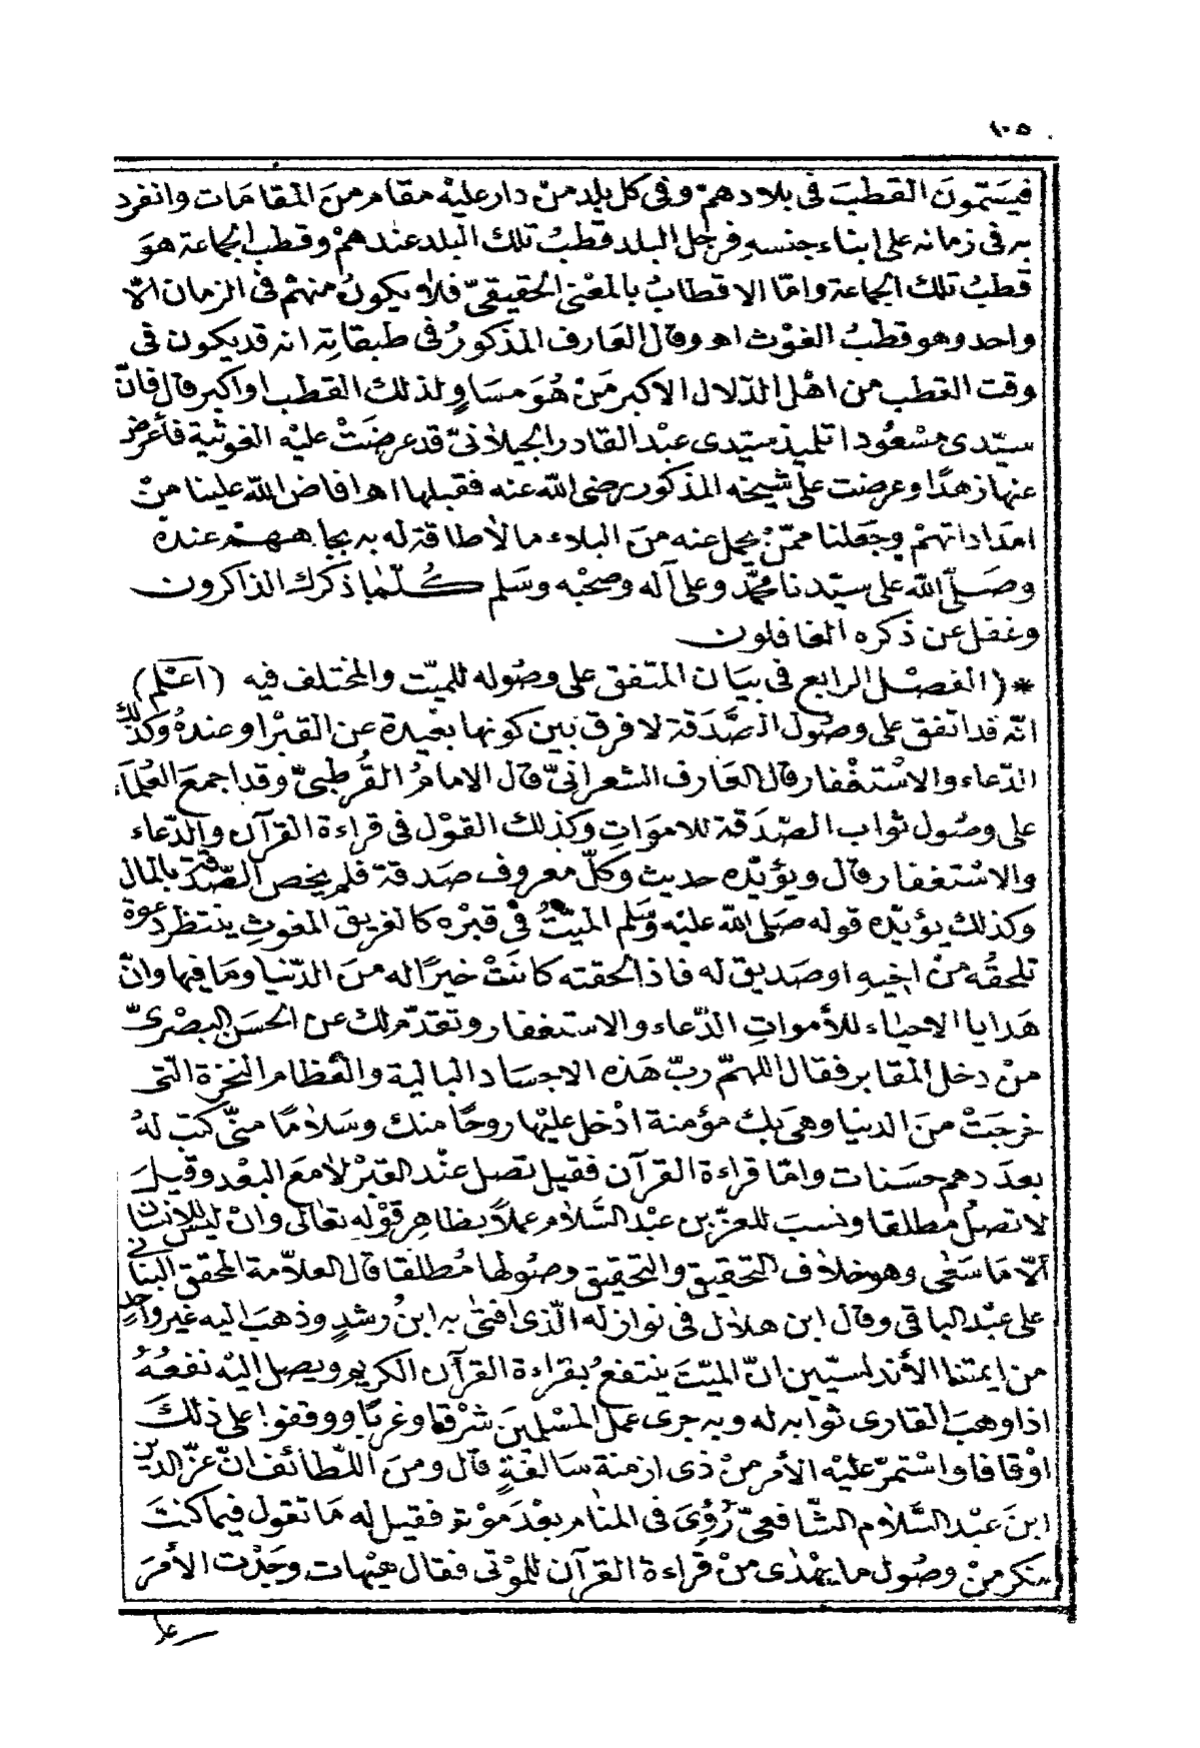 ١٠٥
فيسَمّونَ القطبَ فى بلادهمْ وفى كل بلد منْ دار عليْه مقام منَ المقامَات وانفرد
به فى زمانه على ابناء جنسهِ فرجل البلد قطبُ تلك البلد عندهمْ وقطب الجماعة هوَ
قطبُ تلك الجماعة وامّا الاقطابُ بالمعْنى الحقيقىّ فلا يكونُ منهمْ فى الزمان الاّ
واحد وهو قطبُ الغوْث اهـ وقال العَارف المذكورُ فى طبقاته انه قد يكون فى
وقت القطب من اهْل الدّلال الاكبر مَنْ هُوَ مسَاوٍ لذلك القطب او اكبر قال فانّ
سيّدى مسْعُودا تلميذ سيّدى عبْد القادر الجيلانىّ قد عرضَتْ عليْه الغوثية فأعْرض
عنها زهدًا وعرضت على شيخه المذكور رضى اللّه عنه فقبلها اهـ افاض اللّه علينا منْ
امدَاداتهمْ وجَعلنا ممّنْ يحمل عنه منَ البلاء ما لاطاقة له به بجاههمْ عندهُ
وصَلّى اللّه على سيّدنا محمّد وعلى آله وصحْبه وسَلم كُلّما ذكرك الذاكرون
وغفل عن ذكره الغافلون
*(الفصْل الرابع فى بيَان المتفق على وصُوله للميّت والمختلف فيه (اعْلم)
انّه قد اتفق على وصُول الصَّدَقة لا فرق بين كونها بعيدة عن القبْر او عندهُ وكذلك
الدّعاء والاسْتغْفار قال العَارف الشعرانىّ قال الامامُ القُرطبىّ وقد اجمعَ العُلمَاء
على وصُول ثواب الصّدَقة للامواتِ وكذلك القوْل فى قراءة القرآن والدّعاء
والاسْتغفار قال ويؤيّده حديث وكلّ معروف صَدقة فلم يخص الصّدقة بالمال
وكذلك يؤيّده قوله صَلى اللّه عليْه وسَلم الميّتُ فى قبْره كالغريق المغوثِ ينتظر دعوة
تلحقُه منْ اخيهِ او صَديق له فاذا لحقته كانَتْ خيرًا له منَ الدّنيا ومَا فيها وانّ
هَدايا الاحيَاء للأمواتِ الدّعاء والاستغفار وتقدّم لك عن الحسَن البصْرىّ
منْ دخل المقابر فقال اللهمّ ربّ هَذه الاجسَاد البالية والعظام النخرة التى
خرجَتْ منَ الدنيا وهىَ بك مؤمنة ادْخل عليْها روحًا منك وسَلامًا منّى كتب لهُ
بعدَدهم حسَنات وامّا قراءة القرآن فقيل تصل عنْد القبْر لا مَعَ البعْد وقيلَ
لا تصلُ مطلقا ونسبَ للعزّ بن عبْد السَّلام عملاً بظاهِر قوْله تعَالى وانْ ليْسَ للانسَان
الاّ مَا سَعَى وهو خلاف التحقيق والتحقيق وصُولها مُطلقا قال العلاّمة المحقق البنانى
على عبْد الباقى وقال ابن هلال فى نوازله الّذى افتى به ابنُ رشدٍ وذهبَ اليه غير واحدٍ
من ائمتنا الأندلسيّين انّ الميّتَ ينتفعُ بقراءة القرآن الكريم ويصل اليْه نفعُهُ
اذا وهبَ القارى ثوابه له وبه جرى عمل المسْلمينَ شرْقا وغربًا ووقفوا على ذلكَ
اوْقافا واسْتمرّ عليْه الأمر منْ ذى ازمنة سَالفةٍ قال ومنَ اللّطائف انّ عزّ الدين
ابنَ عبْد السَّلام الشّافعىّ رُؤىَ فى المنام بعْدَ موْته فقيل له مَا تقول فيما كنتَ
تنكر منْ وصُول ما يهْدَى منْ قراءة القرآن للموْتى فقال هيْهات وجَدْت الأمْرَ